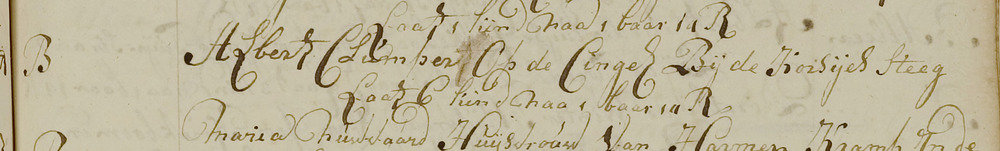 Laat 1 kind naa 1 baar 14 R
B Albert Clumper Op de Cingel Bij de Korsijes steeg
Laat 6 kind naa 1 baar 14 R
Maria Huijsvrouw Van Harmen Kramp In de